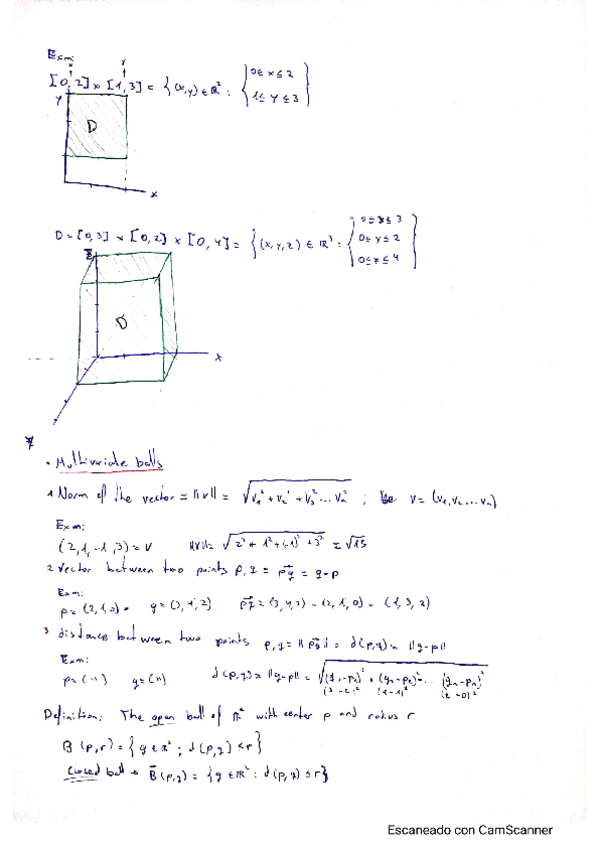 Exm:
[0,2]×[1,3] = {(x,y) ∈ ℝ² : { 0≤x≤2
1≤y≤3 }
Y
D
x
D = [0,3] × [0,2] × [0,4] = {(x,y,z) ∈ ℝ³ : { 0≤x≤3
0≤y≤2
0≤z≤4 }
z
D
x
y
• Multivariate balls
1 Norm of the vector = ||v|| = √(v₁² + v₂² + v₃² ... vₙ²) ; v = (v₁,v₂...vₙ)
Exm:
(2,1,-1,3) = v ||v|| = √(2² + 1² + (-1)² + 3²) = √15
2 vector between two points p,q = p⃗q = q-p
Exm:
p = (2,1,0) q = (3,4,2) p⃗q = (3,4,2) - (2,1,0) = (1,3,2)
3 distance between two points p,q = ||p⃗q|| = d(p,q) = ||q-p||
Exm:
p = (-11) q = (11) d(p,q) = ||q-p|| = √((q₁-p₁)² + (q₂-p₂)² ... (qₙ-pₙ)²)
(3-2)² (1-1)² (2-0)²
Definition: The open ball of ℝ² with center p and radius r
B(p,r) = {q ∈ ℝ² ; d(p,q) < r}
Closed ball → B̄(p,q) = {q ∈ ℝ² : d(p,q) ≤ r}
Escaneado con CamScanner